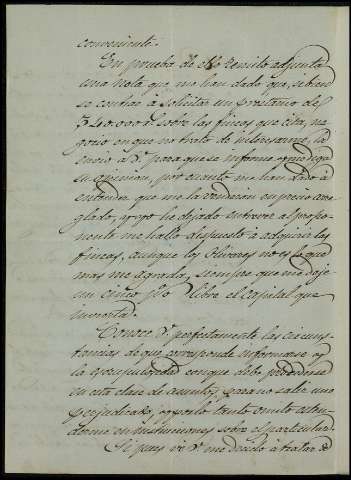 conveniente.
En prueba de ello remito adjunta
una nota que, me han dado que, si bien
se contrae à solicitar un préstamo de
340.000 rs sobre las fincas que cita, ne
gocio en que no trato de interesarme, la
envio a V. para que se informe y me diga
su opinion, por cuanto me han dado à
entender que me la venderian en precio arre
glado, y yo he dejado entrever al propo
nente me hallo dispuesto à adquirir las
fincas, aunque los Olivares no es lo que
mas me agrada, siempre que me deje
un cinco p% libre el capital que
invierta.
Conoce V. perfectamente las circuns
tancias de que corresponde informarse y
la escrupulosidad con que debe procederse
en esta clase de asuntos, para no salir uno
perjudicado, y por lo tanto omito esten
derme en instrucciones sobre el particular.
Si pues V. me decido à tratar de